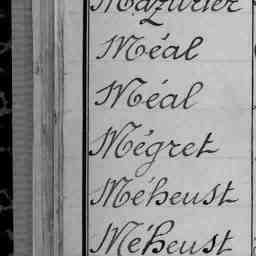 Mazurier
Méal
Méal
Mégret
Méheust
Méheust